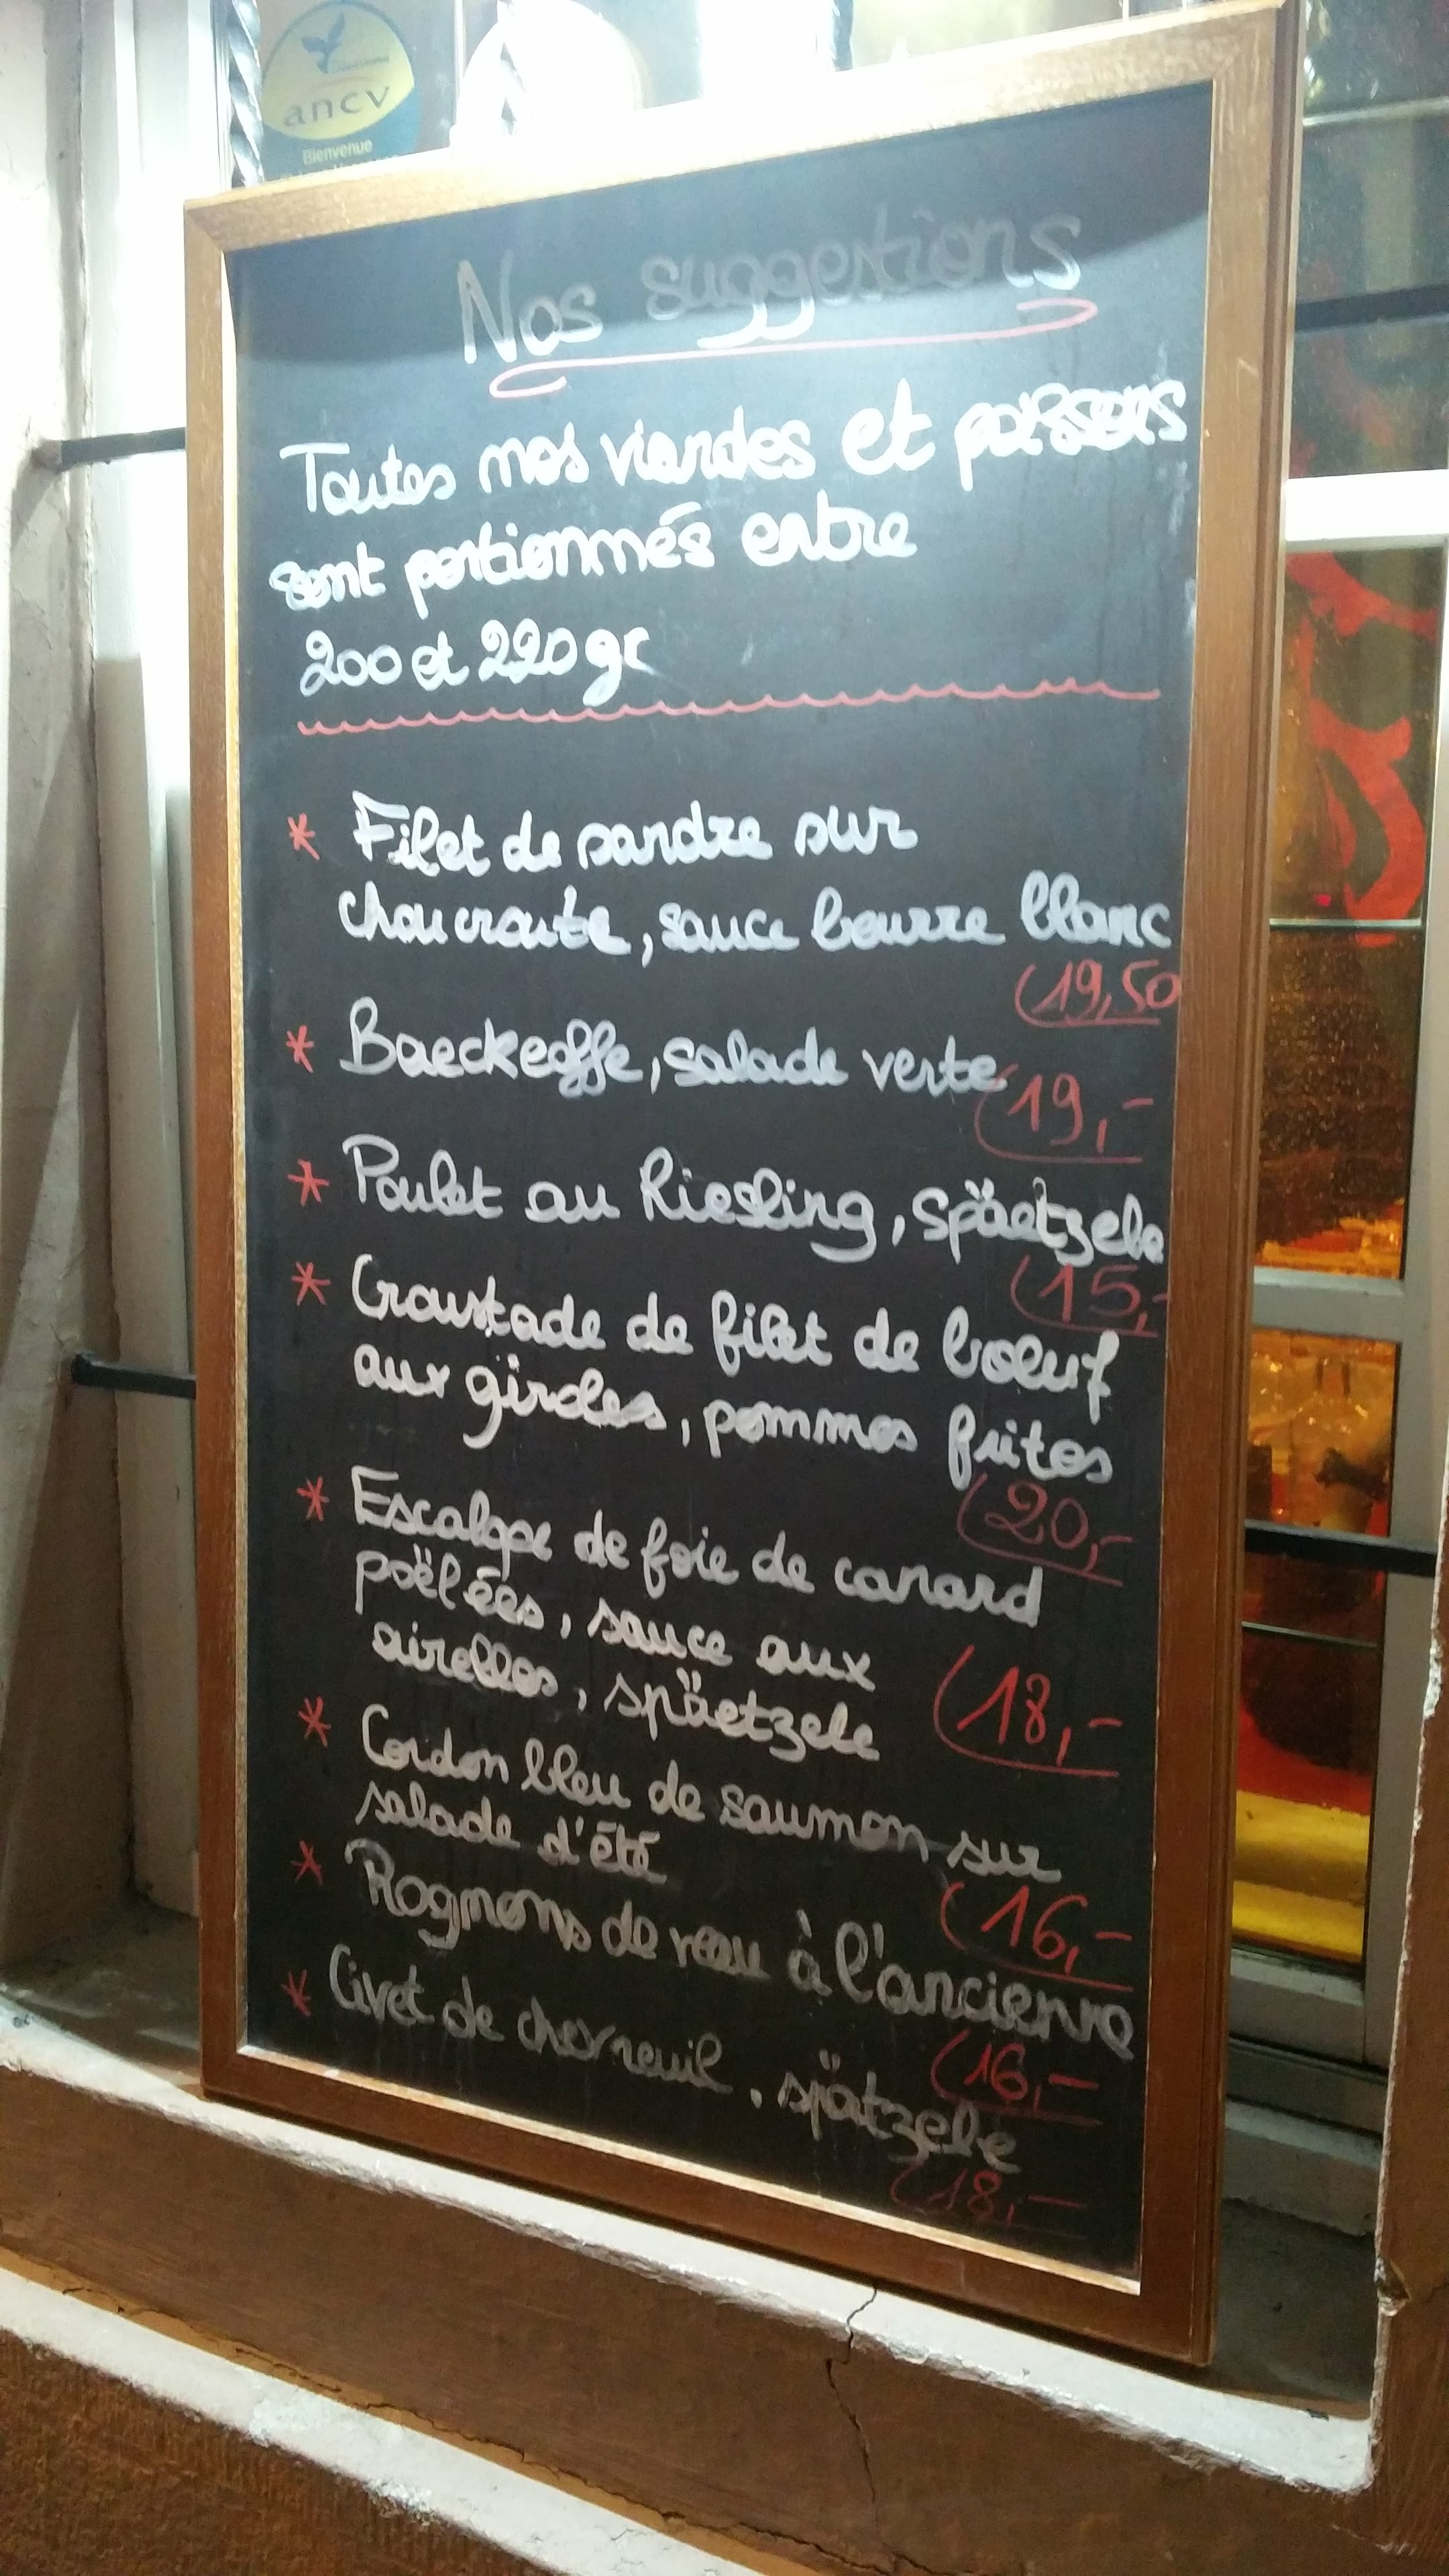 ancv
Bienvenue
Nos suggestions
Toutes nos viandes et poissons
sont portionnés entre
200 et 220 gr
* Filet de sandre sur
choucroute, sauce beurre blanc
19,50
* Baeckeoffe, salade verte
19,-
* Poulet au Riesling, späetzele
15,-
* Croustade de filet de boeuf
aux giroles, pommes frites
20,-
* Escalope de foie de canard
poëlées, sauce aux
airelles, späetzele 18,-
* Cordon bleu de saumon sur
salade d'été
16,-
* Rognons de veau à l'ancienne
16,-
* Civet de chevreuil, spätzele
18,-